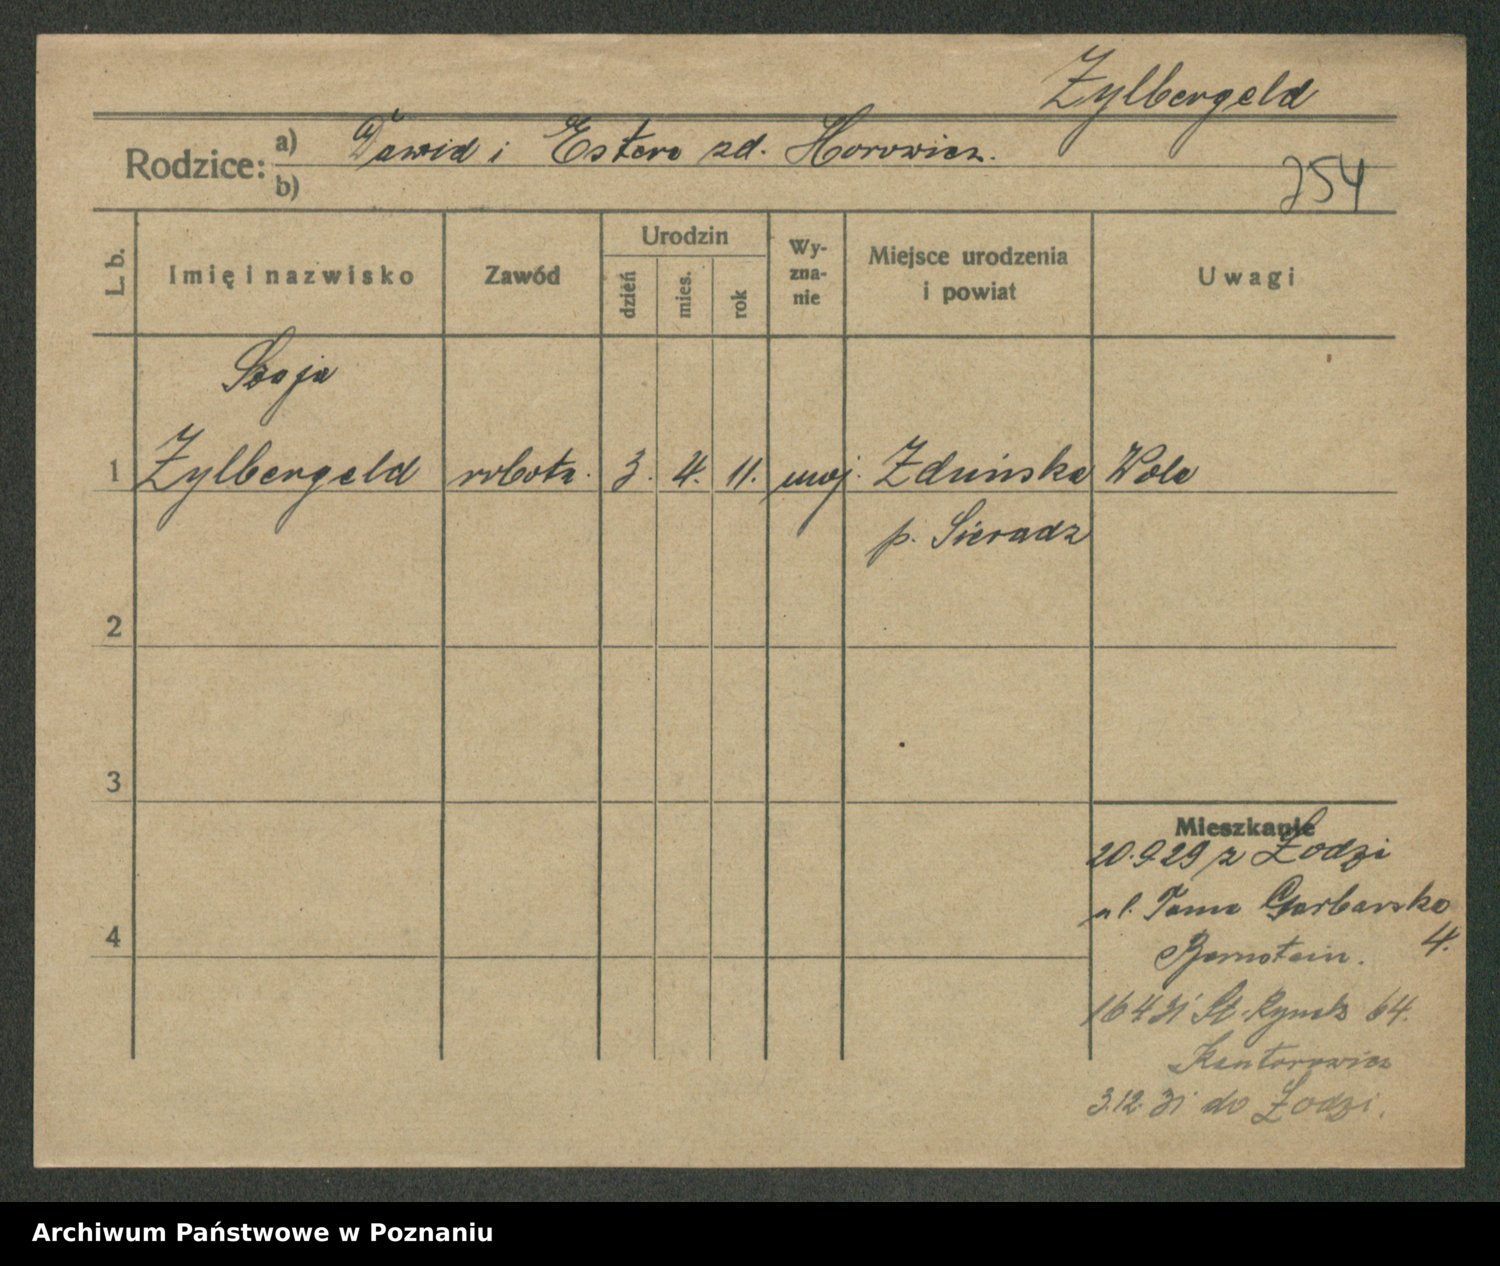 Zylbergeld
Rodzice: a) Dawid i Estera zd. Horowicz.
b)
254
L. b.
Imię i nazwisko
Zawód
Urodzin
dzień
mies.
rok
Wy-
zna-
nie
Miejsce urodzenia
i powiat
Uwagi
Szaja
1 Zylbergeld robotn. 3. 4. 11. mojż. Zduńska Wola
p. Sieradz
2
3
Mieszkanie
20.9.29 z Łodzi
ul. Tama Garbarska
4.
4
Bernstein.
16 4 31 St. Rynek 64.
Kantorowicz
3.12.31 do Łodzi.
Archiwum Państwowe w Poznaniu